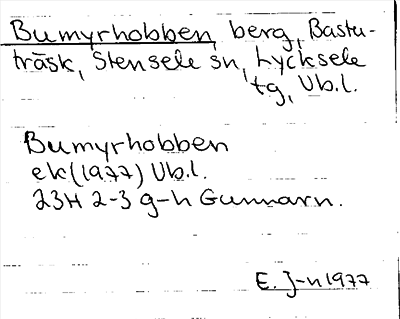 Bumyrhobben, berg, Bastu-
träsk, Stensele sn, Lycksele
tg, Vb.l.
Bumyrhobben
ek (1977) Vb.l.
23H 2-3 g-h Gunnarn.
E. J-n 1977